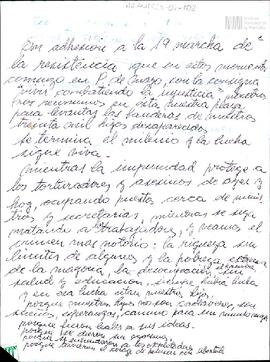 En adhesion a la 19 marcha de
la resistencia que en estos momentos
comenzo en P. de Mayo, con la consigna
"vivir combatiendo la injusticia"
nos reunimos en esta nuestra plaza
para levantar las banderas de nuestros
treinta mil hijos desaparecidos.
Se termina el milenio y la lucha
sigue viva.
Mientras la impunidad protege a
los torturadores y asesinos de ayer y
hoy, ocupando puestos cerca de minis
tros y secretarias, mientras se siga
matando a trabajadores, y veamos el
crimen mas notorio: la riqueza sin
limites de algunos y la pobreza extrema
de la mayoria, la desocupacion, sin
salud y educacion, siempre habra lucha
y en esa lucha estan nuestros hijos,
porque nuestros hijos nos son
sueños, esperanzas, camino para un mundo mejor
porque fueron fieles a sus ideas.
porque
porque
porque